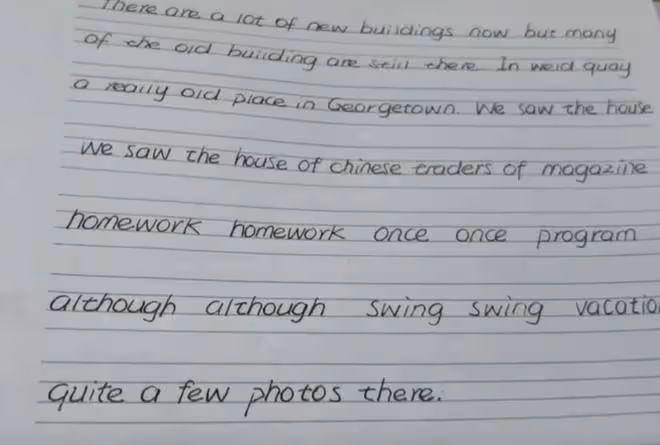 There are a lot of new buildings now but many
of the old building are still there. In weld quay
a really old place in Georgetown. We saw the house
We saw the house of chinese traders of magazine
homework homework once once program
although although swing swing vacatio
quite a few photos there.